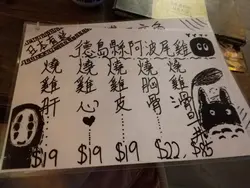 德島縣阿波尾雞
燒雞肝 $19
燒雞心 $19
燒雞皮 $19
燒雞胸骨 $22
燒雞